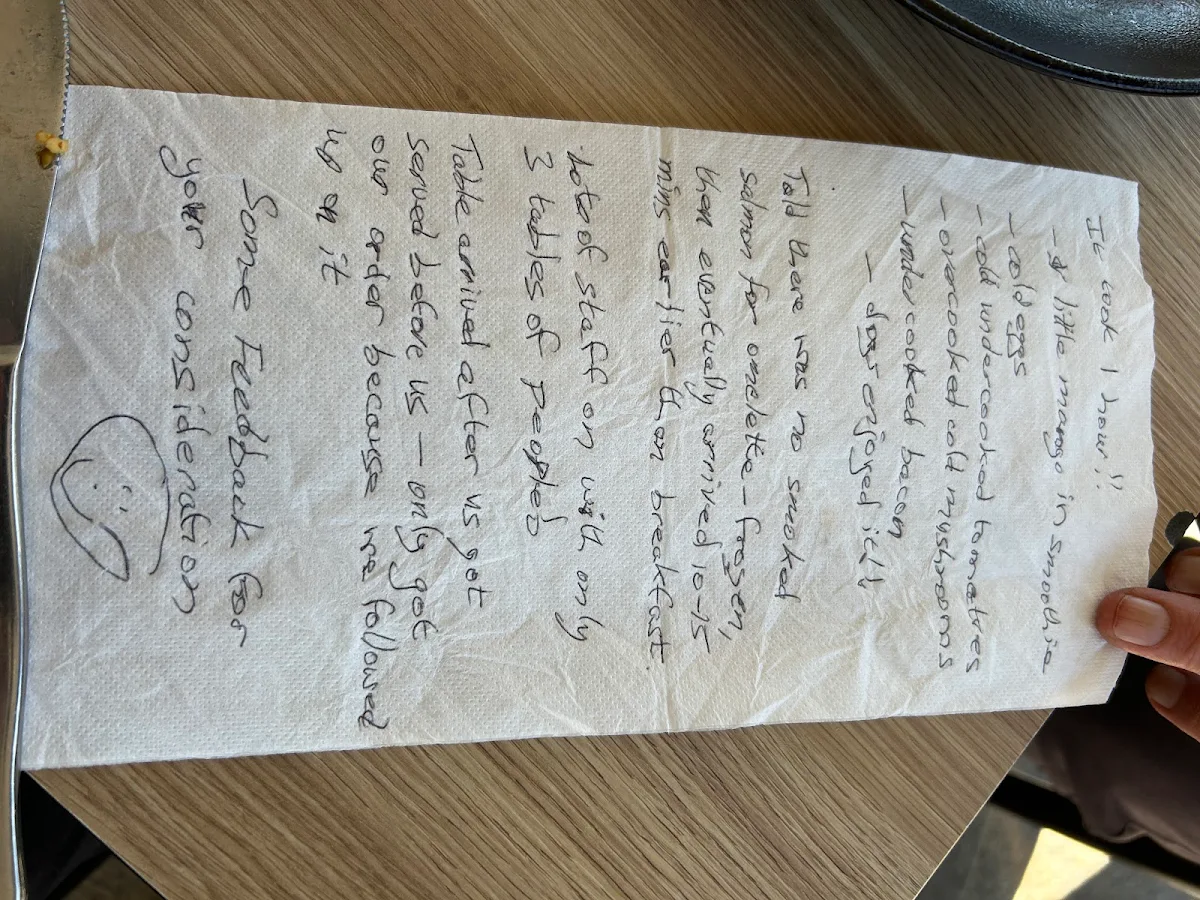 It took 1 hour!!
- little mango in smoothie
- cold eggs
- cold undercooked tomatoes
- overcooked cold mushrooms
- undercooked bacon
- dogs enjoyed it!!
Told there was no smoked
salmon for omelette - frozen,
then eventually arrived 10-15
mins earlier than breakfast.
Lots of staff on with only
3 tables of people
Table arrived after us got
served before us - only got
our order because we followed
up on it
Some Feedback for
your consideration